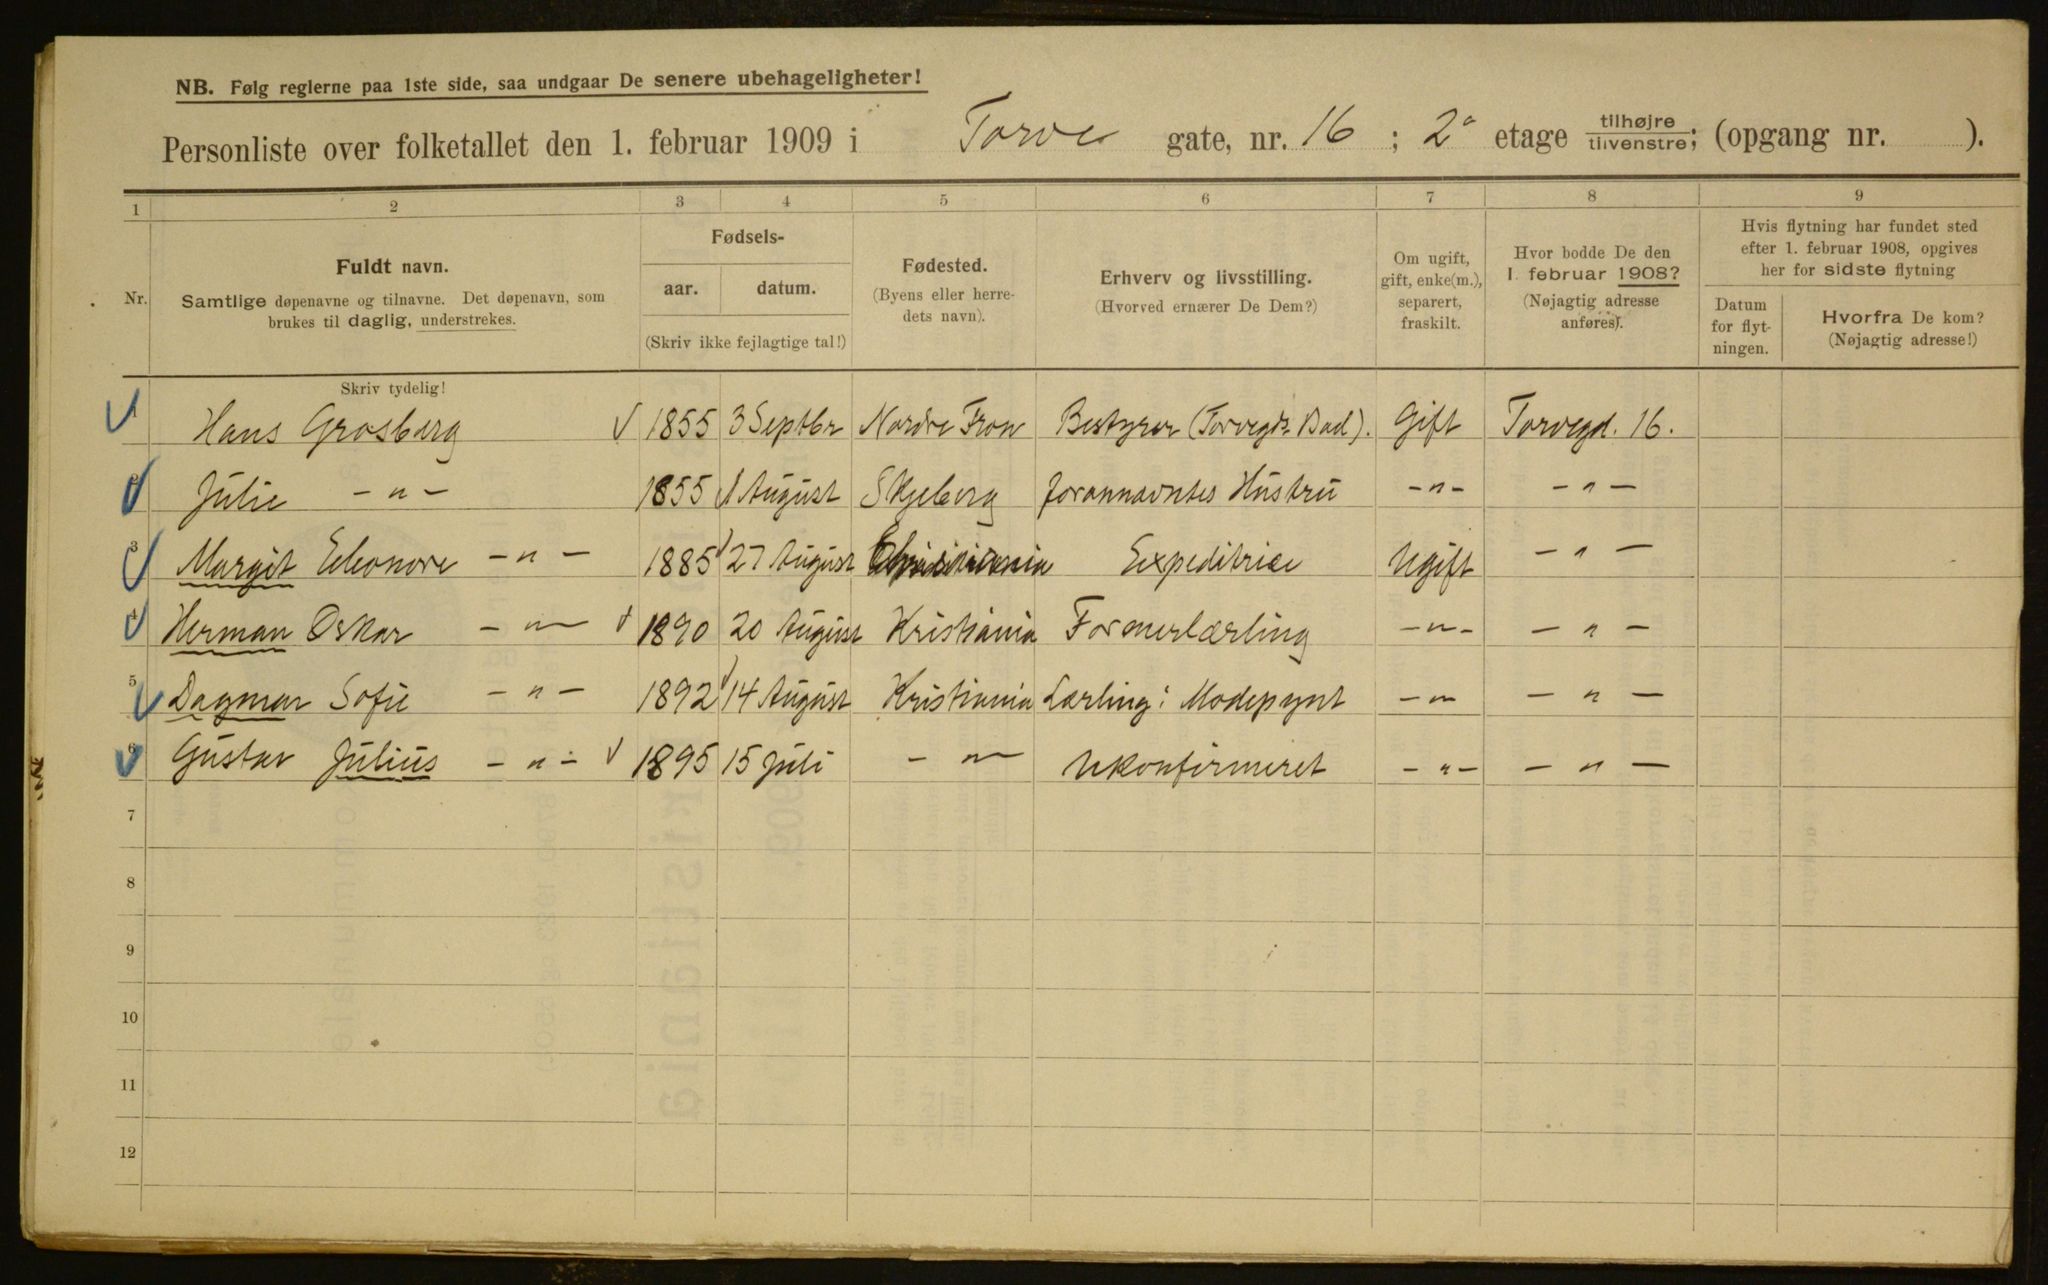 NB. Følg reglerne paa 1ste side, saa undgaar De senere ubehageligheter!
Personliste over folketallet den 1. februar 1909 i Torve gate, nr. 16 ; 2a etage tilhøjre / tilvenstre; (opgang nr. ).
1 2 3 4 5 6 7 8 9
Nr.
Fuldt navn.
Samtlige døpenavne og tilnavne. Det døpenavn, som
brukes til daglig, understrekes.
Skriv tydelig!
Fødsels-
aar. datum.
(Skriv ikke fejlagtige tal!)
Fødested.
(Byens eller herre-
dets navn).
Erhverv og livsstilling.
(Hvorved ernærer De Dem?)
Om ugift,
gift, enke(m.),
separert,
fraskilt.
Hvor bodde De den
1. februar 1908?
(Nøjagtig adresse
anføres).
Hvis flytning har fundet sted
efter 1. februar 1908, opgives
her for sidste flytning
Datum
for flyt-
ningen.
Hvorfra De kom?
(Nøjagtig adresse!)
1 Hans Grosberg 1855 3 Septbr Nordre Fron Bestyrer (Torvegds Bad). Gift Torvegd. 16.
2 Julie -"- 1855 1 August Skjeberg forannavntes Hustru -"- -"-
3 Margit Eleonore -"- 1885 27 August Christiania Expeditrice Ugift -"-
4 Herman Oskar -"- 1890 20 August Kristiania Formerlærling -"- -"-
5 Dagmar Sofie -"- 1892 14 August Kristiania Lærling i Modepynt -"- -"-
6 Gustav Julius -"- 1895 15 Juli -"- Ukonfirmeret -"- -"-
7
8
9
10
11
12